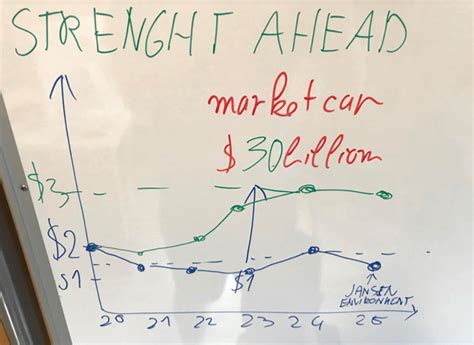 STRENGHT AHEAD
market can
$30 billion
$3
$2
$1
$1
JANSEN
ENVIRONMENT
20 21 22 23 24 25